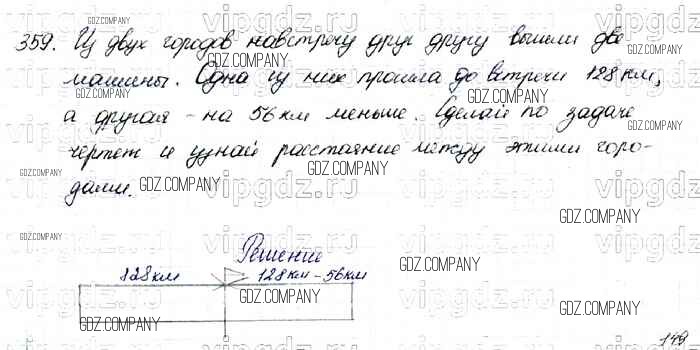 359. Из двух городов навстречу друг другу вышли две
машины. Одна из них прошла до встречи 128 км,
а другая - на 56 км меньше. Сделай по задаче
чертеж и узнай расстояние между этими горо-
дами.
Решение
128 км 128 км - 56 км
149
GDZ.COMPANY
vipgdz.ru